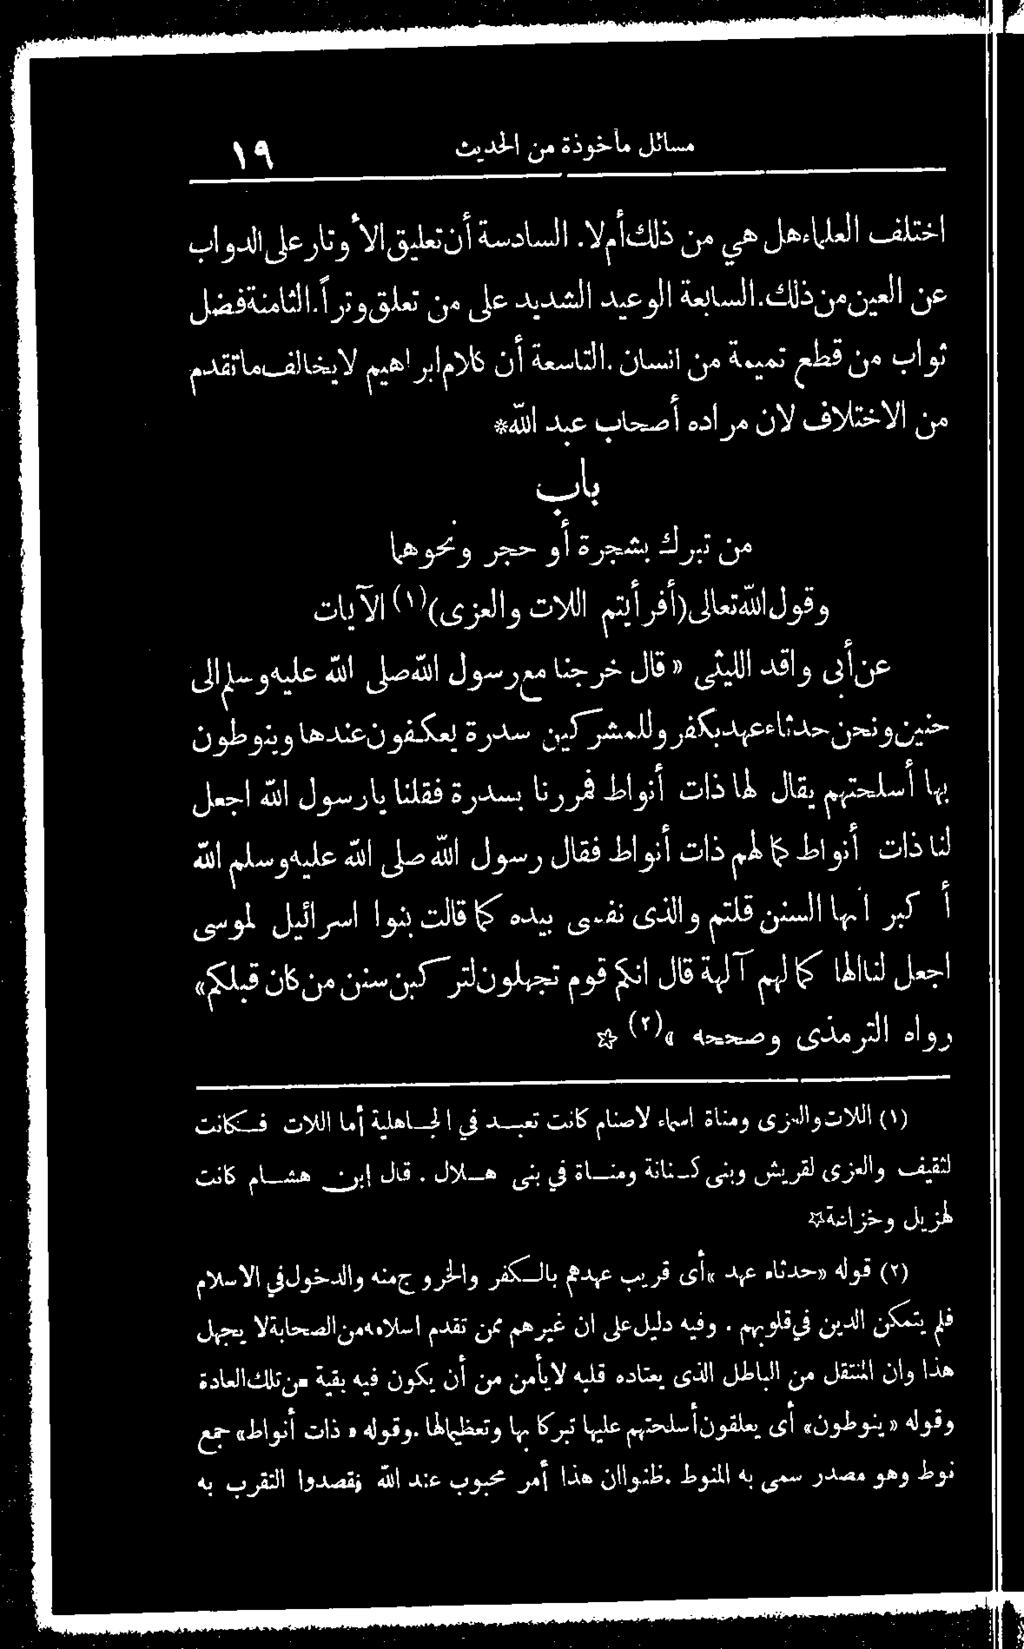 مسائل مأخوذة من الحديث ١٩
اختلف العلماء هل هي من ذلك أم لا. السادسة أن تعليق الأوتار على الدواب
عن العين من ذلك. السابعة الوعيد الشديد على من تعلق وتراً. الثامنة فضل
ثواب من قطع تميمة من انسان. التاسعة أن كلام ابراهيم لا يخالف ما تقدم
من الاختلاف لان مراده أصحاب عبد الله*
باب
من تبرك بشجرة أو حجر ونحوهما
وقول الله تعالى (أفرأيتم اللات والعزى) (١) الآيات
عن أبى واقد الليثى « قال خرجنا مع رسول الله صلى الله عليه وسلم الى
حنين ونحن حدثاء عهد بكفر وللمشركين سدرة يعكفون عندها وينوطون
بها أسلحتهم يقال لها ذات أنواط فمررنا بسدرة فقلنا يارسول الله اجعل
لنا ذات أنواط كما لهم ذات أنواط فقال رسول الله صلى الله عليه وسلم الله
أكبر انها السنن قلتم والذى نفسى بيده كما قالت بنوا اسرائيل لموسى
اجعل لنا الها كما لهم آلهة قال انكم قوم تجهلون لتركبن سنن من كان قبلكم»
رواه الترمذى وصححه » (٢) ☆
(١) اللات والعزى ومناة اسماء لاصنام كانت تعبد في الجاهلية أما اللات فكانت
لثقيف والعزى لقريش وبنى كنانة ومناة في بنى هلال . قال ابن هشام كانت
لهزيل وخزاعة☆
(٢) قوله «حدثاء عهد » أى قريب عهدهم بالكفر والخروج منه والدخول في الاسلام
فلم يتمكن الدين في قلوبهم . وفيه دليل على ان غيرهم ممن تقدم اسلامه من الصحابة لا يجهل
هذا وان المنتقل من الباطل الذى يعتاده قلبه لا يأمن من أن يكون فيه بقية من تلك العادة
وقوله « ينوطون» أى يعلقون أسلحتهم عليها تبركا بها وتعظيما لها .وقوله « ذات أنواط» جمع
نوط وهو مصدر سمى به المنوط .ظنوا ان هذا أمر محبوب عند الله فقصدوا التقرب به